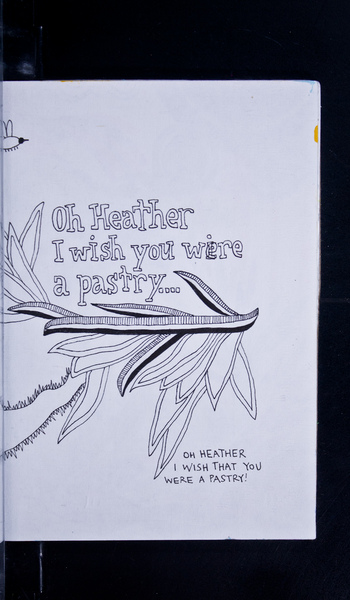 Oh Heather
I wish you were
a pastry...
OH HEATHER
I WISH THAT YOU
WERE A PASTRY!